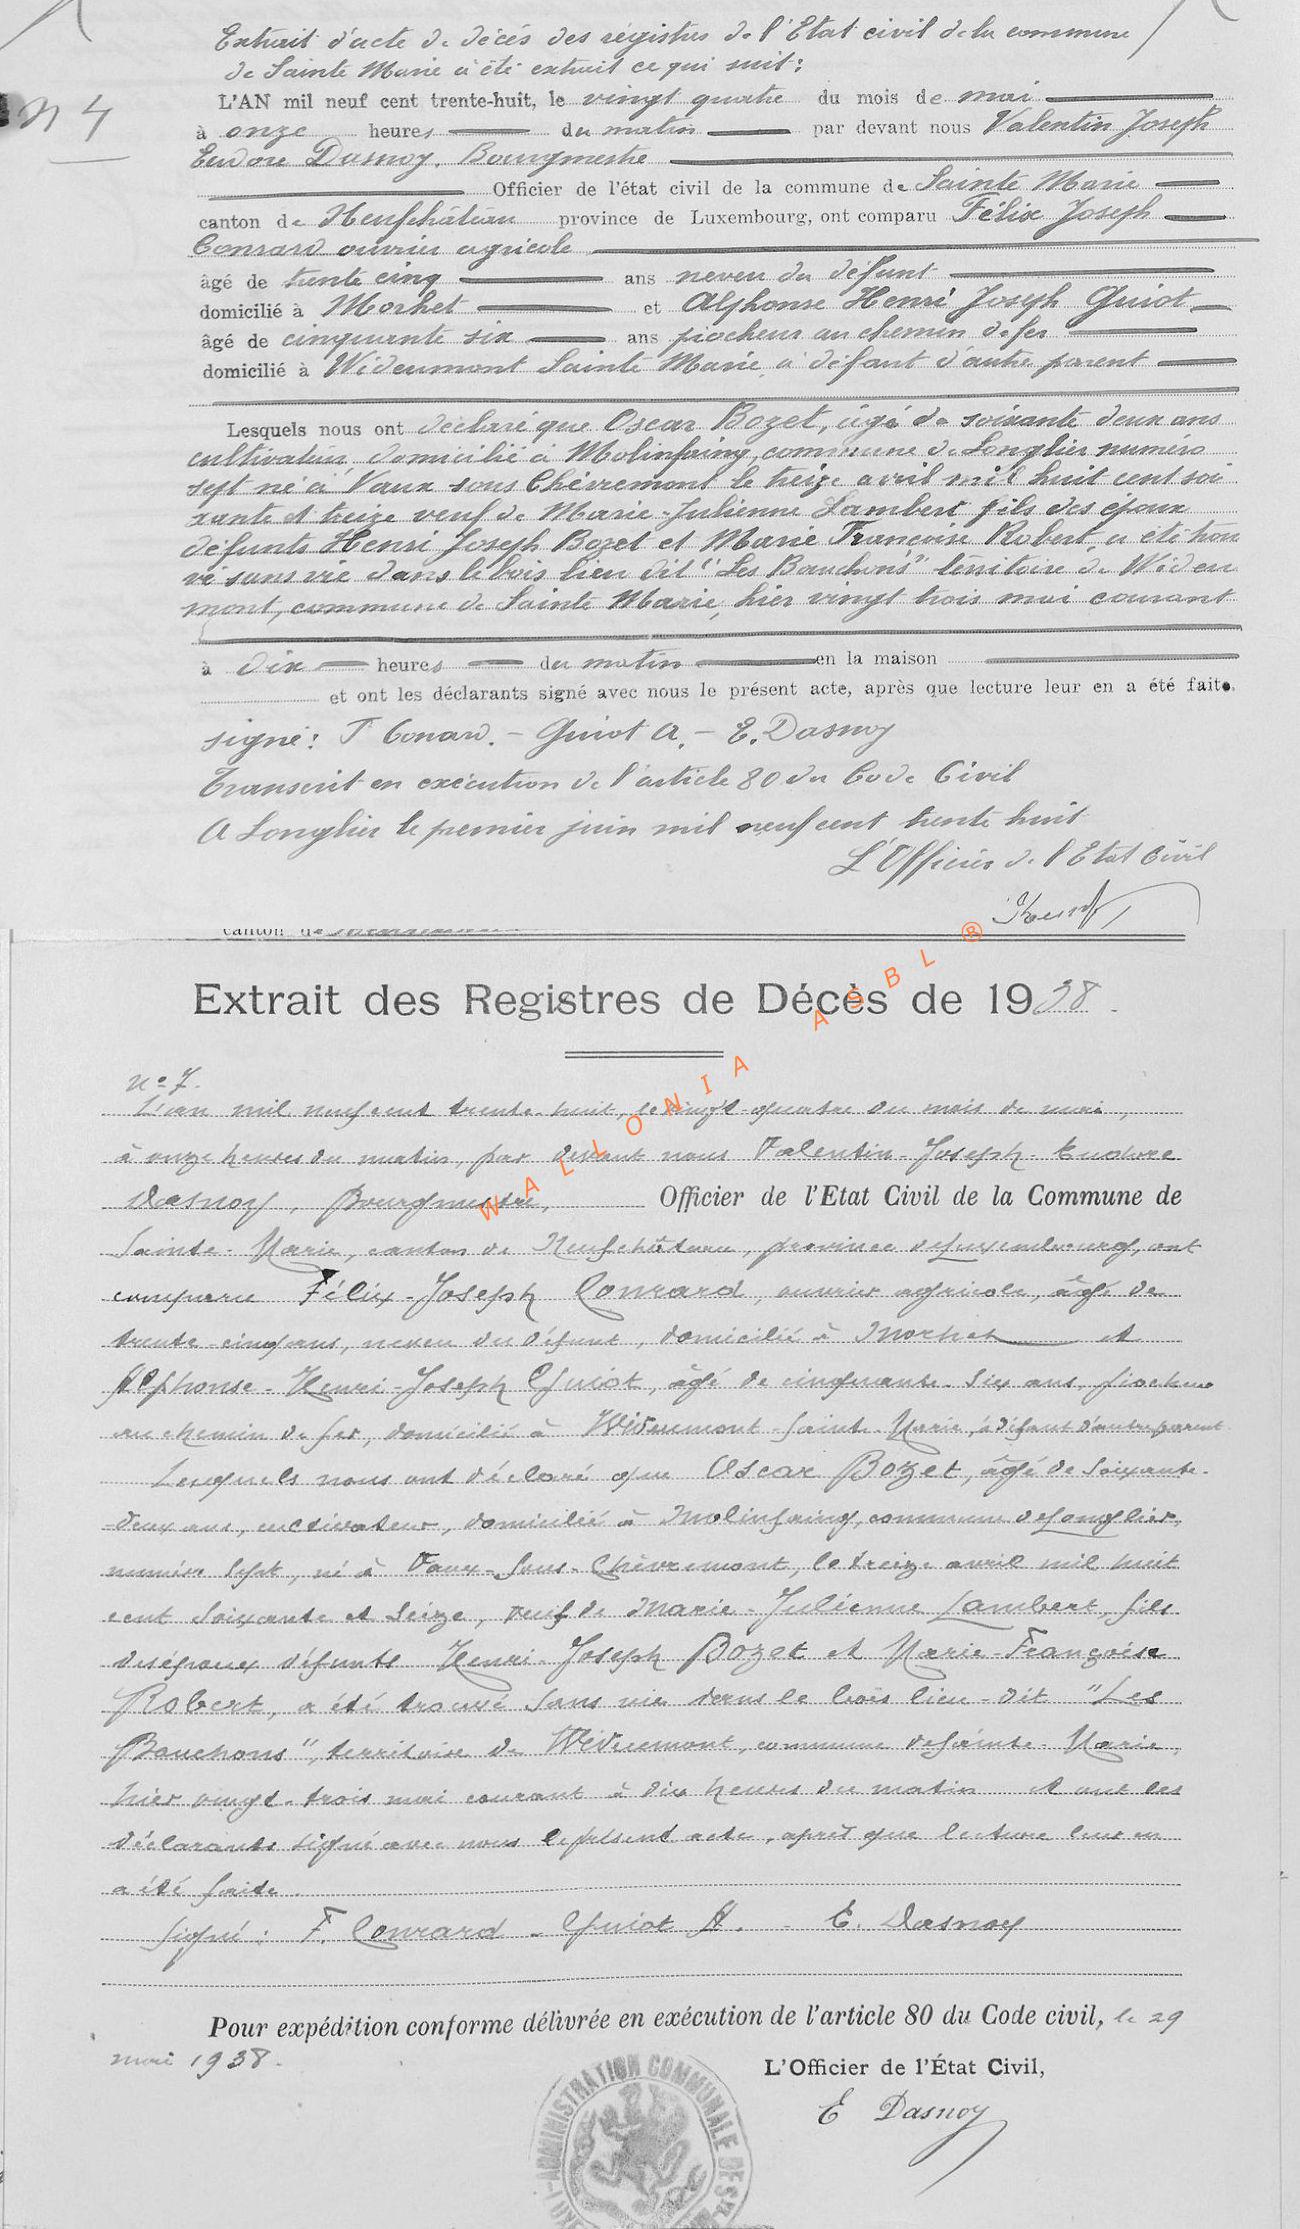 Extrait d'acte de décès des régistres de l'Etat civil de la commune
de Sainte Marie a été extrait ce qui suit :
N 4
L'AN mil neuf cent trente-huit, le vingt quatre du mois de mai
à onze heures du matin par devant nous Valentin Joseph
Eudore Dasnoy, Bourgmestre
Officier de l'état civil de la commune de Sainte Marie
canton de Neufchâteau province de Luxembourg, ont comparu Félix Joseph
Conrard ouvrier agricole
âgé de trente cinq ans neveu du défunt
domicilié à Morhet et Alphonse Henri Joseph Guiot
âgé de cinquante six ans piocheur au chemin de fer
domicilié à Wideumont Sainte Marie, à défaut d'autre parent
Lesquels nous ont déclaré que Oscar Bozet, âgé de soixante deux ans
cultivateur, domicilié à Molinfaing, commune de Longlier numéro
sept né à Vaux sous Chèvremont le treize avril mil huit cent soi
xante et treize veuf de Marie-Julienne Lambert fils des époux
défunts Henri Joseph Bozet et Marie Françoise Robert, a été trou
vé sans vie dans le bois lieu dit "Les Bauchons" territoire de Wideu
mont, commune de Sainte Marie, hier vingt trois mai courant
à dix heures du matin en la maison
et ont les déclarants signé avec nous le présent acte, après que lecture leur en a été faite.
signé : F Conard. - Guiot A. - E. Dasnoy
Transcrit en exécution de l'article 80 du Code Civil
A Longlier le premier juin mil neuf cent trente huit
L'Officier de l'Etat Civil
canton de
Extrait des Registres de Décès de 1938.
n° 7.
L'an mil neuf cent trente-huit, le vingt-quatre du mois de mai,
à onze heures du matin, par devant nous Valentin-Joseph-Eudore
Dasnoy, Bourgmestre, Officier de l'Etat Civil de la Commune de
Sainte-Marie, canton de Neufchâteau, province de Luxembourg, ont
comparu Félix-Joseph Conrard, ouvrier agricole, âgé de
trente-cinq ans, neveu du défunt, domicilié à Morhet et
Alphonse-Henri-Joseph Guiot, âgé de cinquante-six ans, piocheur
au chemin de fer, domicilié à Wideumont-Sainte-Marie, à défaut d'autre parent
Lesquels nous ont déclaré que Oscar Bozet, âgé de soixante-
deux ans, cultivateur, domicilié à Molinfaing, commune de Longlier,
numéro sept, né à Vaux-sous-Chèvremont, le treize avril mil huit
cent soixante et seize, veuf de Marie-Julienne Lambert, fils
des époux défunts Henri-Joseph Bozet et Marie-Françoise
Robert, a été trouvé sans vie dans le bois lieu-dit "Les
Bauchons", territoire de Wideumont, commune de Sainte-Marie,
hier vingt-trois mai courant à dix heures du matin et ont les
déclarants signé avec nous le présent acte, après que lecture leur en
a été faite.
Signé : F. Conrard - Guiot A. - E. Dasnoy
Pour expédition conforme délivrée en exécution de l'article 80 du Code civil, le 29
mai 1938.
L'Officier de l'État Civil,
E Dasnoy
ADMINISTRATION COMMUNALE DE STE
WALLONIA ASBL ®